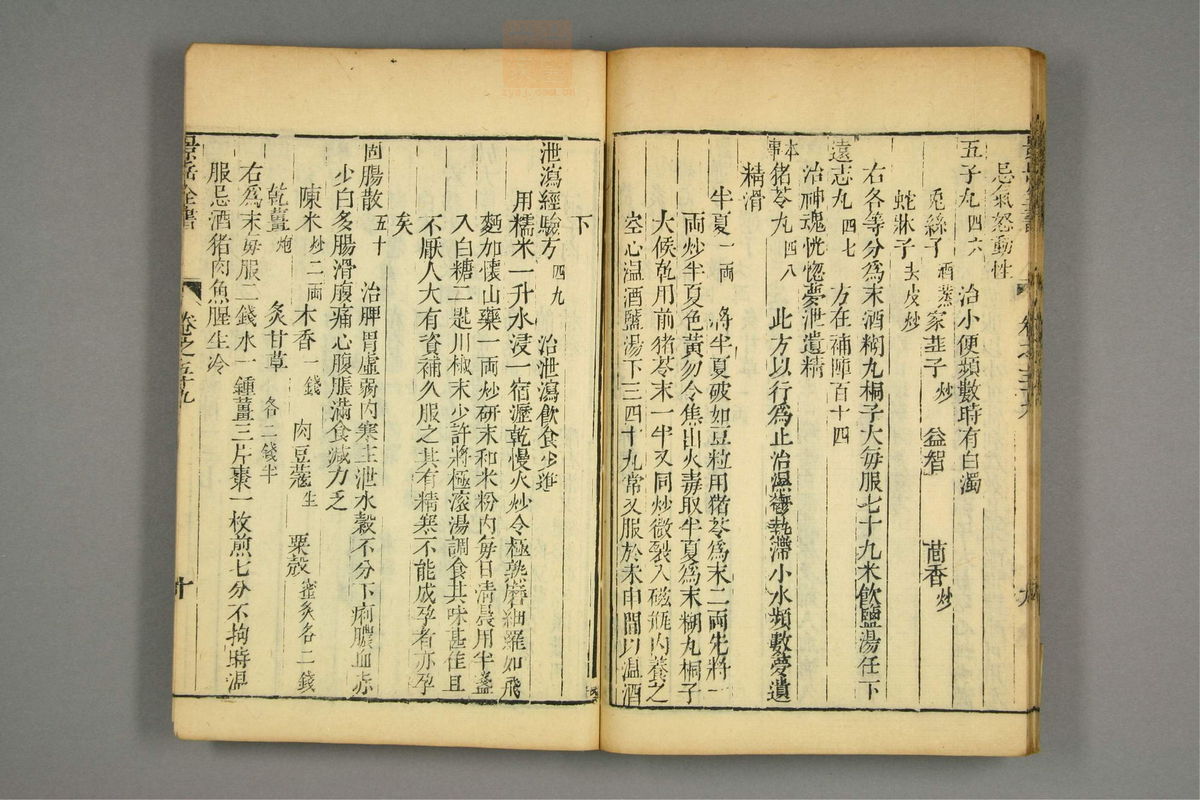 忌氣怒動性
五子丸 四六 治小便頻數時有白濁
兔絲子 酒蒸 家韭子 炒 益智 茴香 炒
蛇牀子 去皮炒
右各等分爲末酒糊丸桐子大每服七十丸米飲鹽湯任下
遠志丸 四七 方在補陣百十四
治神魂恍惚夢泄遺精
本事猪苓丸 四八 此方以行爲止治濕鬱熱滯小水頻數夢遺
精滑
半夏 一兩 將半夏破如豆粒用猪苓爲末二兩先將一
兩炒半夏色黃勿令焦出火毒取半夏爲末糊丸桐子
大候乾用前猪苓末一半又同炒微裂入磁瓶內養之
空心温酒鹽湯下三四十丸常又服於未申間以温酒
下
泄瀉經驗方 四九 治泄瀉飲食少進
用糯米一升水浸一宿瀝乾慢火炒令極熟磨細羅如飛
麵加懷山藥一兩炒研末和米粉內每日清晨用半盞
入白糖二匙川椒末少許將極滚湯調食其味甚佳且
不厭人大有資補久服之其有精寒不能成孕者亦孕
矣
固腸散 五十 治脾胃虛弱內寒主泄水穀不分下痢膿血赤
少白多腸滑腹痛心腹脹滿食減力乏
陳米 炒二兩 木香 一錢 肉豆蔻 生 粟殼 蜜炙各二錢
乾薑 炮 炙甘草 各二錢半
右爲末每服二錢水一鍾薑三片棗一枚煎七分不拘時温
服忌酒猪肉魚腥生冷
景岳全書 卷之五十九 十